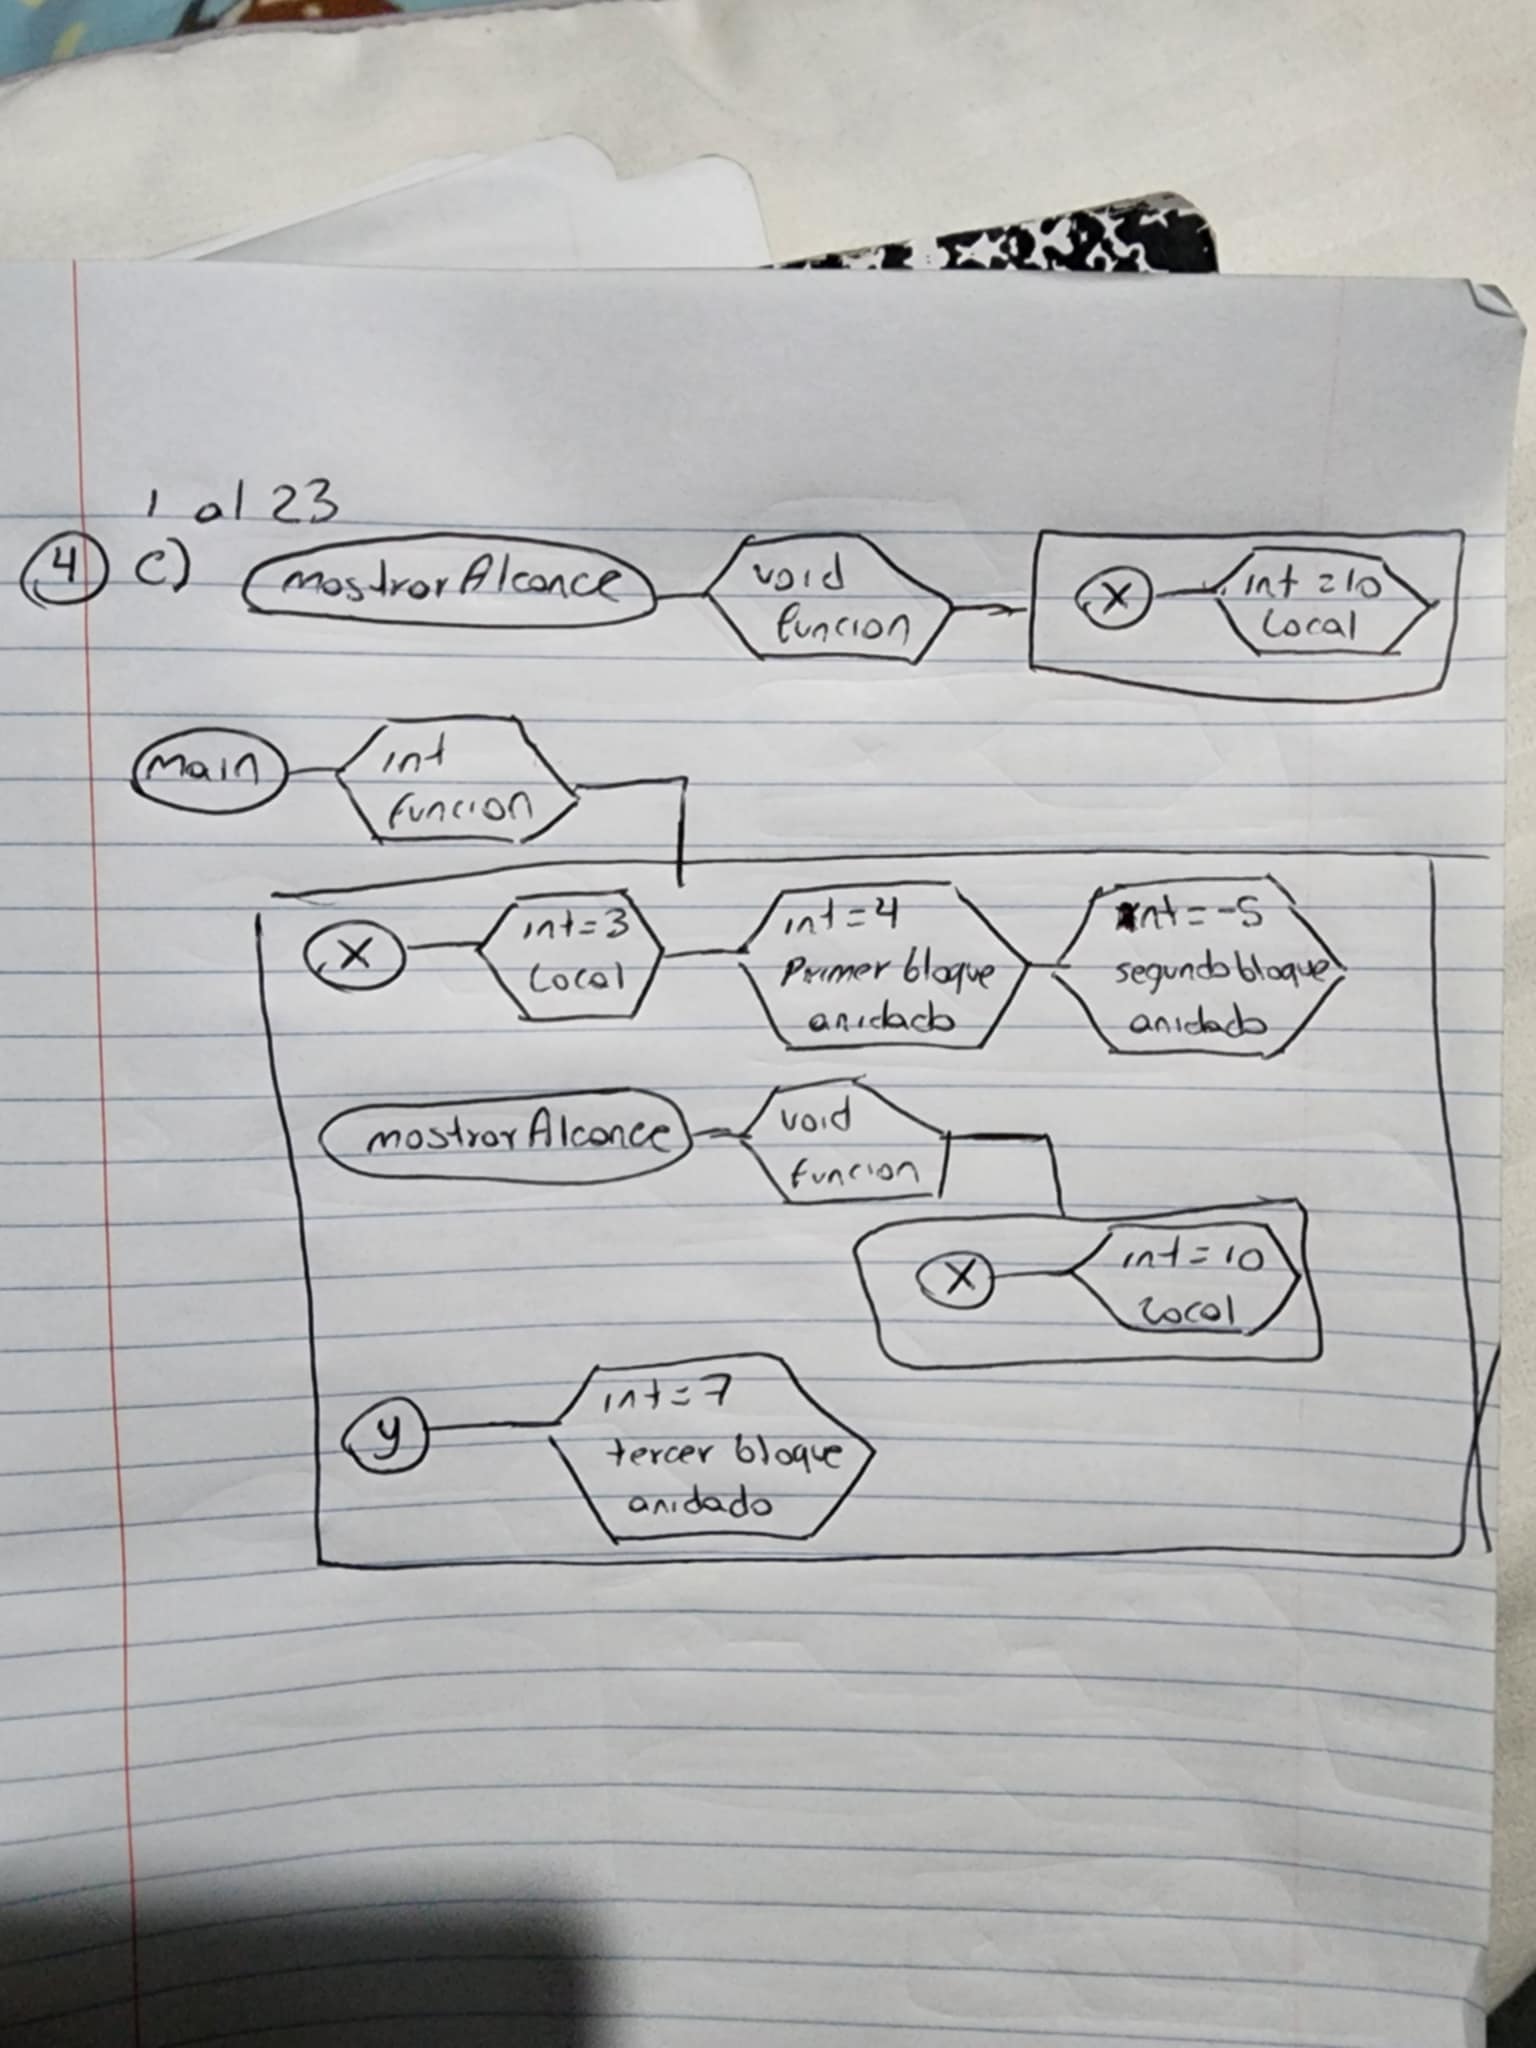 1 al 23
4 c) mostrarAlcance void funcion x int = 10 Local
main int funcion
x int = 3 Local int = 4 Primer bloque anidado int = -5 segundo bloque anidado
mostrarAlcance void funcion
x int = 10 Local
y int = 7 tercer bloque anidado